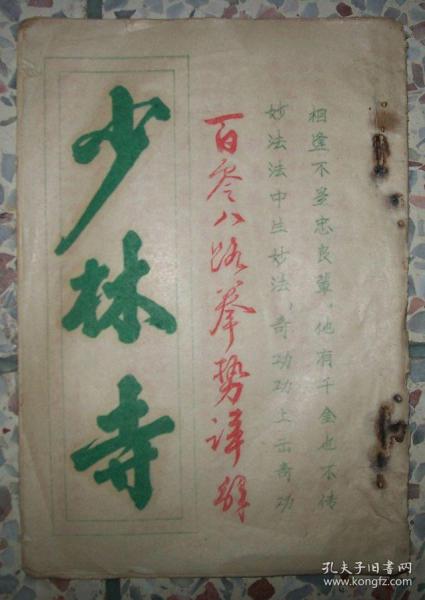 相逢不是忠良辈，他有千金也不传
妙法法中生妙法，奇功功上出奇功
百零八路拳势详解
少林寺
孔夫子旧书网
www.kongfz.com